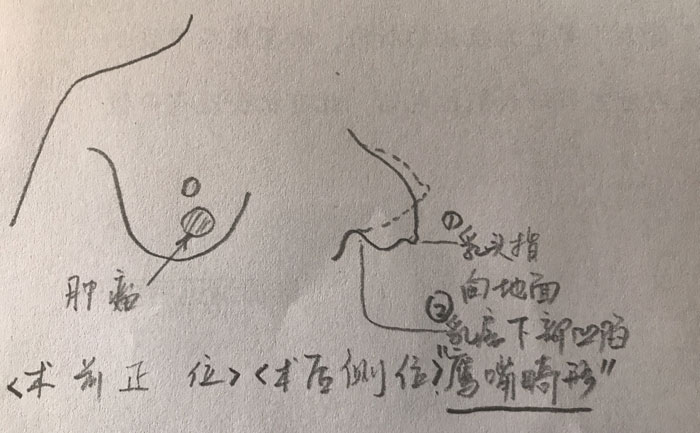 肿瘤
①乳头指
向地面
②乳房下部凹陷
<术前正位><术后侧位>"鹰嘴畸形"